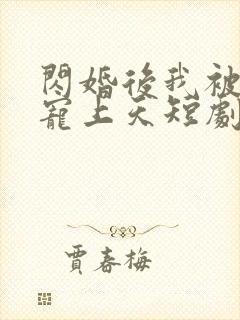 閃婚後我被
寵上天短劇
賈春梅